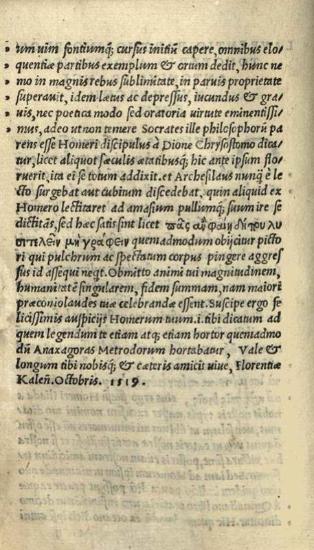 » rum uim fontiumq; cursus initiũ capere, omnibus elo-
» quentiæ partibus exemplum & ortum dedit, hunc ne
» mo in magnis rebus sublimitate, in paruis proprietate
» superauit, idem lætus ac depressus, iucundus & gra-
» uis, nec poetica modo sed oratoria uirtute eminentissi-
» mus, adeo ut non temere Socrates ille philosophorũ pa
rens esse Homeri discipulus à Dione Chrysostomo dica
tur, licet aliquot sæculis ætatibusq; hic ante ipsum flo-
ruerit, ita ei se totum addixit. et Archesilaus nunq̃ è le
cto surgebat aut cubitum discedebat, quin aliquid ex
Homero lectitaret ad amasium pulliumq; suum ire se
dictitãs, sed hæc satis sint licet
quemadmodum obijciur picto
ri qui pulchrum ac spectatum corpus pingere aggres
sus id assequi neqt. Obmitto animi tui magnitudinem,
humanitatẽ singularem, fidem summam, nam maiori
præconio laudes tuæ celebrandæ essent. Suscipe ergo fe
licissimis auspicijs Homerum tuum. i. tibi dicatum ad
quem legendum te etiam atq; etiam hortor quemadmo
dũ Anaxagoras Metrodorum hortabatur, Vale &
longum tibi nobisq; & cæteris amicis uiue, Florentiæ
Kaleñ. Octobris. 1519.